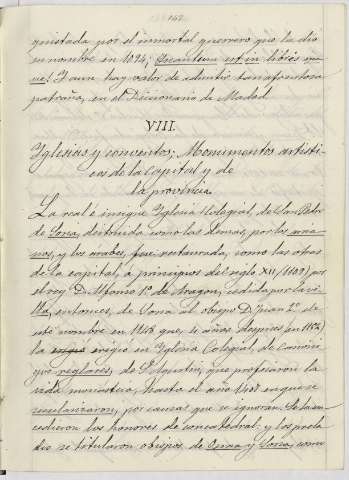 142
quistada por el inmortal guerrero que la dio
su nombre en 1094; ut in libris
! Y aun hay valor de admitir tan afrentosa
patraña, en el Diccionario de Madoz
VIII.
Yglesias y conventos; Monumentos artisti-
cos de la Capital y de
la provincia.
La real é insigne Yglesia Colegial, de San Pedro
de Soria, destruida como las demas, por los
y los arabes, fue restaurada, como las otras
de la capital, á principios del siglo XII, (1109) por
el rey D. Alfonso 1º de Aragon, cedida por la vi-
lla, entonces, de Soria al obispo D. Juan 2º de
este nombre en 1148 que, 4 años despues (en 1152)
la erigió en Yglesia Colegial, de Canoni-
gos reglares, de S. Agustin, que profesaron la
vida monastica, hasta el año 1408 en que se
secularizaron, por causas que se ignoran. Se la con-
cedieron los honores de concatedral: y los prela-
dos se titularon obispos de Osma y Soria, como